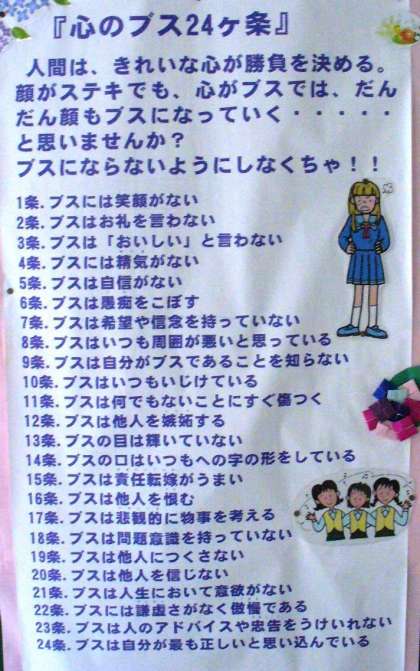 『心のブス24ヶ条』
人間は、きれいな心が勝負を決める。
顔がステキでも、心がブスでは、だん
だん顔もブスになっていく・・・・・
と思いませんか？
ブスにならないようにしなくちゃ！！
1条.ブスには笑顔がない
2条.ブスはお礼を言わない
3条.ブスは「おいしい」と言わない
4条.ブスには精気がない
5条.ブスは自信がない
6条.ブスは愚痴をこぼす
7条.ブスは希望や信念を持っていない
8条.ブスはいつも周囲が悪いと思っている
9条.ブスは自分がブスであることを知らない
10条.ブスはいつもいじけている
11条.ブスは何でもないことにすぐ傷つく
12条.ブスは他人を嫉妬する
13条.ブスの目は輝いていない
14条.ブスの口はいつもへの字の形をしている
15条.ブスは責任転嫁がうまい
16条.ブスは他人を恨む
17条.ブスは悲観的に物事を考える
18条.ブスは問題意識を持っていない
19条.ブスは他人につくさない
20条.ブスは他人を信じない
21条.ブスは人生において意欲がない
22条.ブスには謙虚さがなく傲慢である
23条.ブスは人のアドバイスや忠告をうけいれない
24条.ブスは自分が最も正しいと思い込んでいる